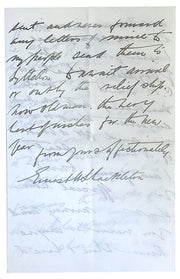 sent and never forward
any letters & mine to
my people send them to
Lyttelton to await arrival
or on by the relief ship.
now old man the very
best of wishes for the new
year from yours affectionately
Ernest H Shackleton